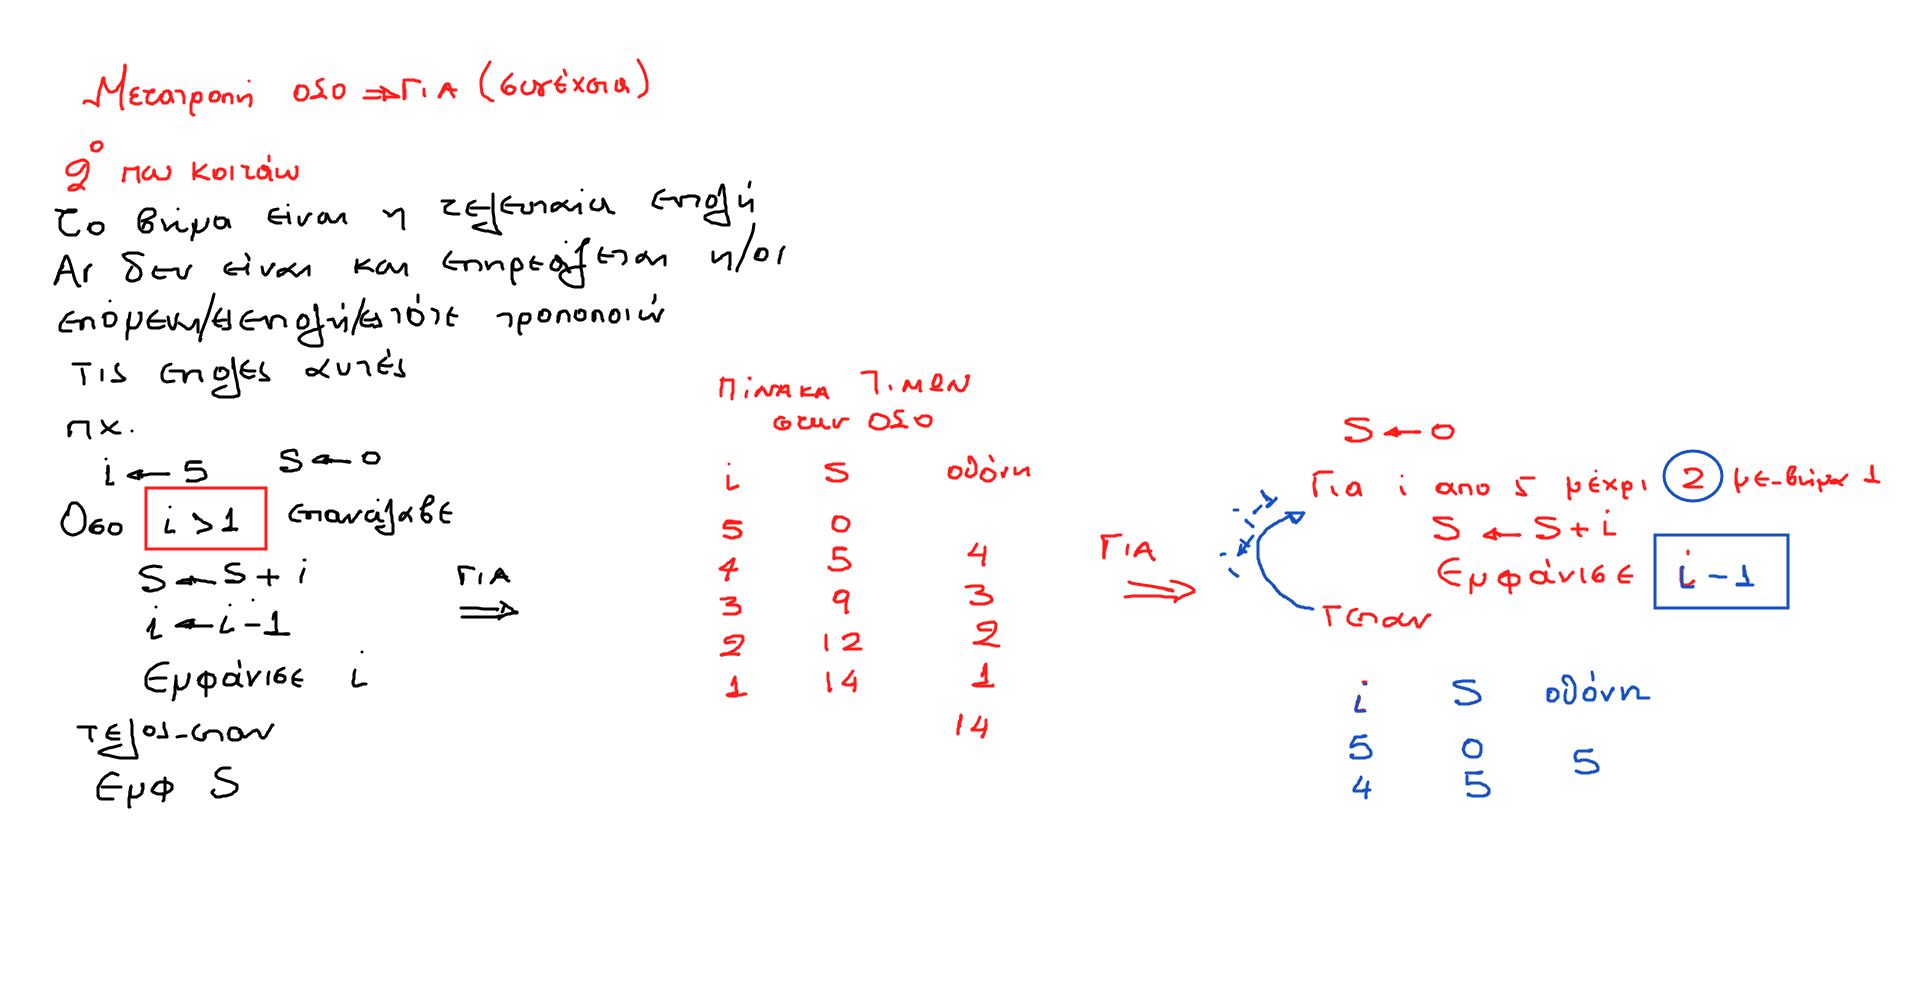 Μετατροπή ΟΣΟ ⇒ ΓΙΑ (συνέχεια)
2° που κοιτάω
Το βήμα είναι η τελευταία εντολή
Αν δεν είναι και επηρεάζεται η/οι
επόμενη/ες εντολή/ες τότε τροποποιώ
τις εντολές αυτές
πχ.
i ← 5 S ← 0
Οσο i > 1 επανάλαβε
S ← S + i
i ← i - 1
Εμφάνισε i
τελος-επαν
Εμφ S
ΓΙΑ
⇒
ΠίΝΑΚΑ ΤιΜΩΝ
στην ΟΣΟ
i S οθόνη
5 0
4 5 4
3 9 3
2 12 2
1 14 1
14
ΓΙΑ
⇒
S ← 0
Για i απο 5 μέχρι 2 με-βημα 1
S ← S + i
Εμφάνισε i - 1
Τεπαν
i S οθόνη
5 0 5
4 5